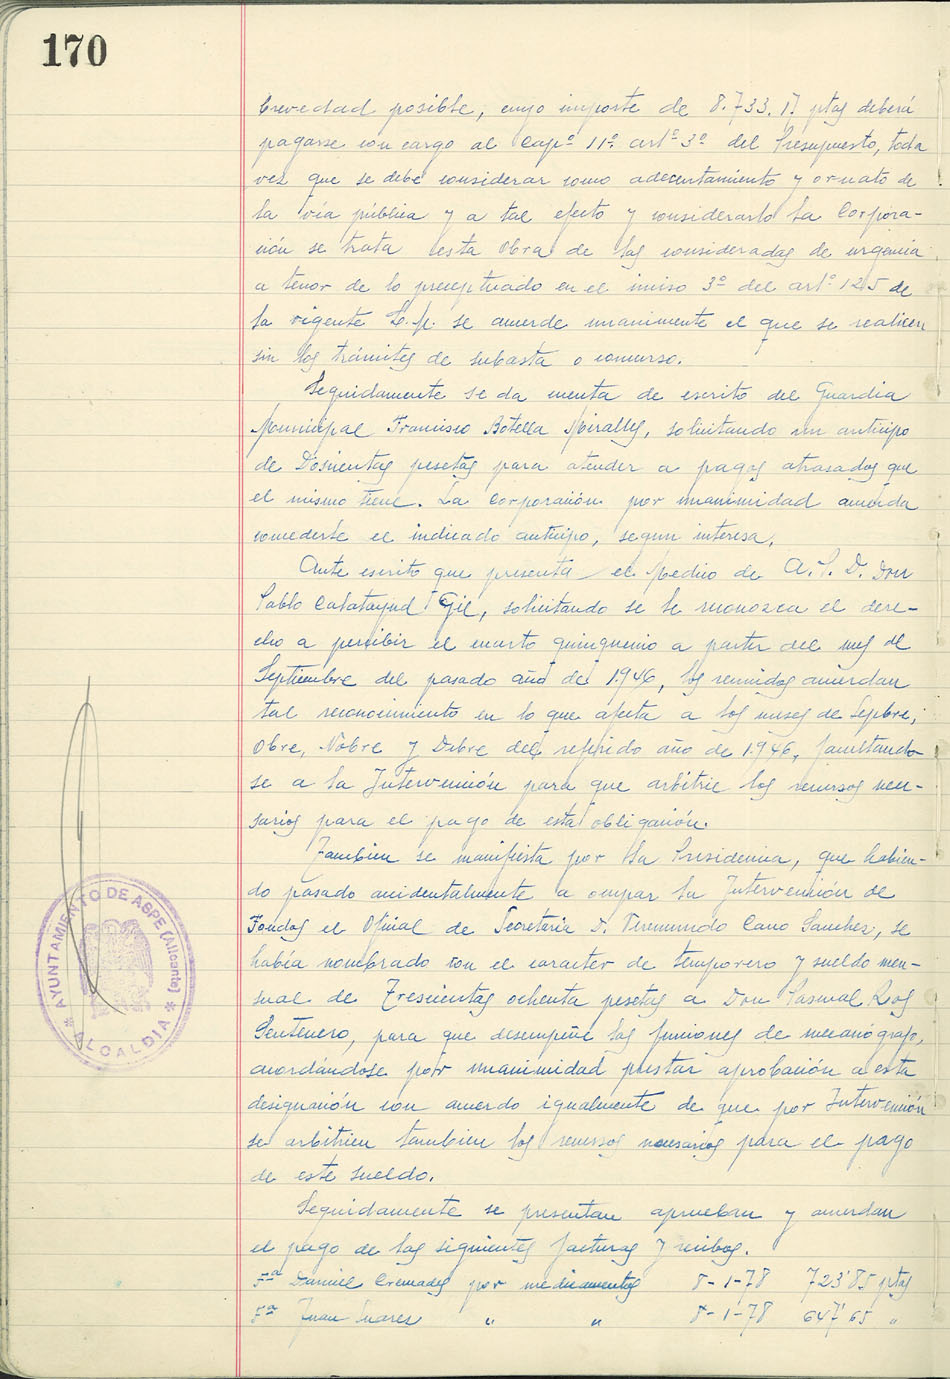 170
brevedad posible, cuyo importe de 8.733.17 ptas deberá
pagarse con cargo al Capº 11º artº 3º del Presupuesto, toda
vez que se debe considerar como adecentamiento y ornato de
la vía pública y a tal efecto y considerarlo la Corpora-
ción se trata esta obra de las consideradas de urgencia
a tenor de lo preceptuado en el inciso 3º del artº 125 de
la vigente L.M. se acuerde unanimente el que se realicen
sin los trámites de subasta o concurso.
Seguidamente se da cuenta de escrito del Guardia
Municipal Francisco Botella Miralles, solicitando un anticipo
de Doscientas pesetas para atender a pagos atrasados que
el mismo tiene. La Corporación por unanimidad acuerda
concederle el indicado anticipo, segun interesa.
Ante escrito que presenta el Medico de A.P.D. Don
Pablo Calatayud Gil, solicitando se le reconozca el dere-
cho a percibir el cuarto quinquenio a partir del mes de
Septiembre del pasado año de 1.946, los reunidos acuerdan
tal reconocimiento en lo que afecta a los meses de Sepbre,
Obre, Nobre y Dbre del referido año de 1.946, facultando-
se a la Intervención para que arbitrie los recursos nece-
sarios para el pago de esta obligación.
Tambien se manifiesta por la Presidencia, que habien-
do pasado accidentalmente a ocupar la Intervención de
Fondos el Oficial de Secretaria D. Veremundo Cano Sanchez, se
había nombrado con el caracter de temporero y sueldo men-
sual de Trescientas ochenta pesetas a Don Pascual Ros
Sentenero, para que desempeñe las funciones de mecanógrafo,
acordándose por unanimidad prestar aprobación a esta
designación con acuerdo igualmente de que por Intervención
se arbitrien tambien los recursos necesarios para el pago
de este sueldo.
Seguidamente se presentan aprueban y acuerdan
el pago de las siguientes facturas y recibos.
Fra Daniel Cremades por medicamentos 8-1-78 723'85 ptas
Fra Juan Suarez " " 8-1-78 647'65 "
AYUNTAMIENTO DE ASPE (Alicante)
* ALCALDIA *